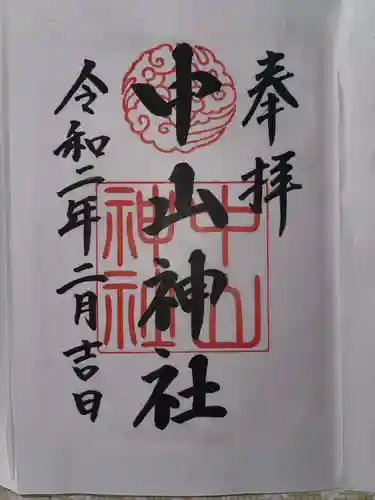 奉拝
中山神社
中山神社
令和二年二月吉日